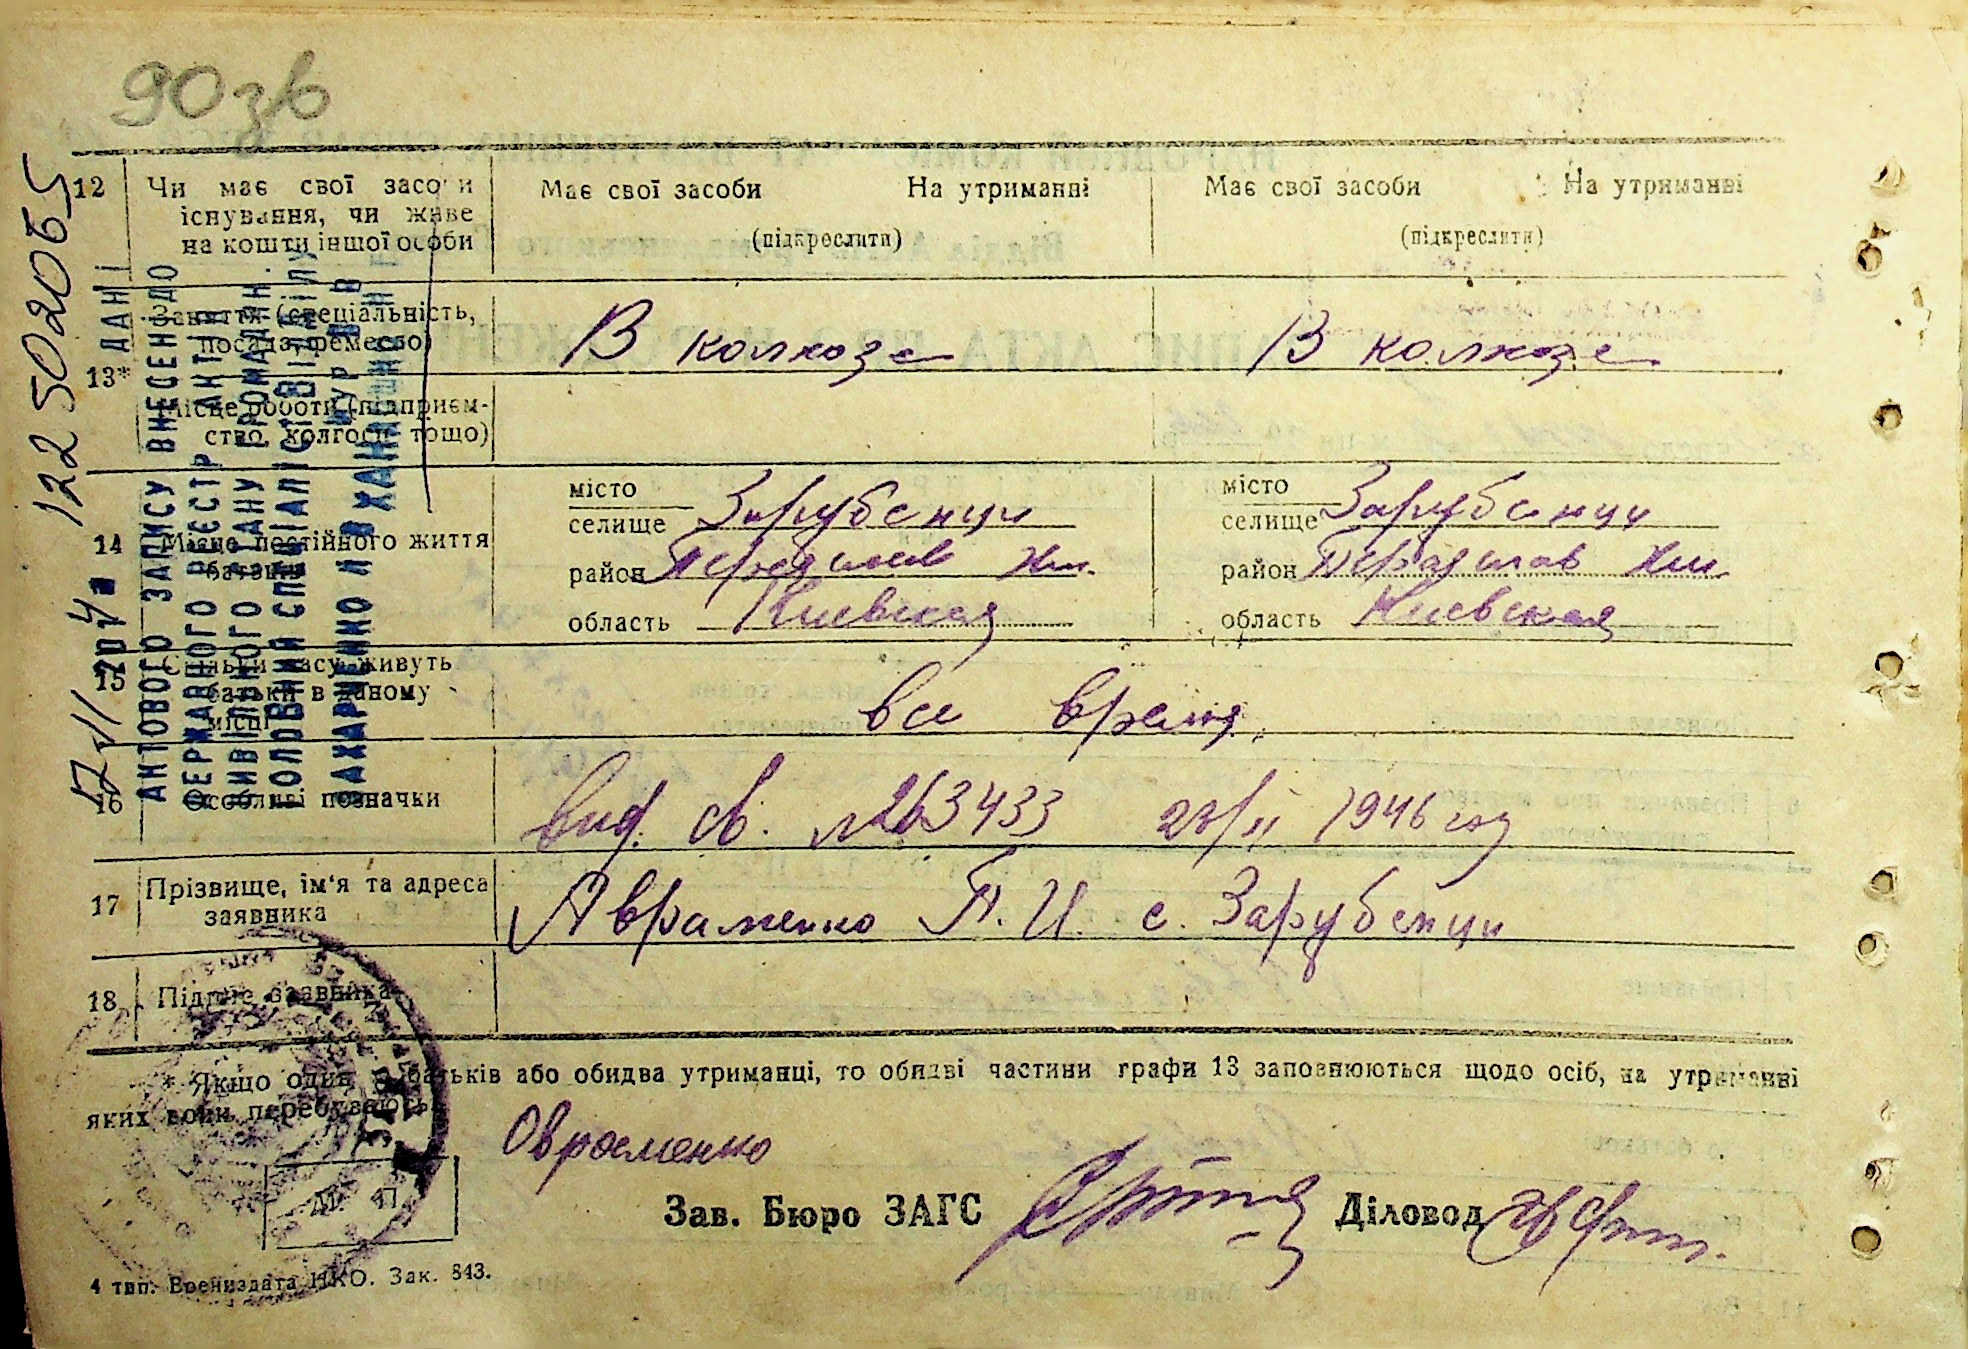 90зв
12 Чи має свої засоби Має свої засоби На утриманні Має свої засоби На утриманні
існування, чи живе
на кошти іншої особи (підкреслити) (підкреслити)
Заняття (спеціальність,
посада, ремесло) В колхозе В колхозе
13*
Місце роботи (підприєм-
ство, колгосп тощо)
місто місто
селище Зарубенци селище Зарубенци
14 Місце постійного життя
батьків район Переяслав Хм. район Переяслав Хм.
область Киевская область Киевская
15 Скільки часу живуть
батьки в даному
місці все время
16 Особливі позначки Выд. св. №263433 1946 год
17 Прізвище, ім'я та адреса
заявника Авраменко П. И. с. Зарубенци
18 Підпис заявника
* Якщо один з батьків або обидва утриманці, то обидві частини графи 13 заповнюються щодо осіб, на утриманні
яких вони перебувають.
Овраменко
Зав. Бюро ЗАГС Діловод
М. П.
4 тип. Воениздата НКО. Зак. 843.
122502065
ДАНІ
АКТОВОГО ЗАПИСУ ВНЕСЕНІ ДО
ДЕРЖАВНОГО РЕЄСТР АКТІВ
ЦИВІЛЬНОГО СТАНУ ГРОМАДЯН.
ГОЛОВНИЙ СПЕЦІАЛІСТ ВІДДІЛУ
ЗАХАРЧЕНКО